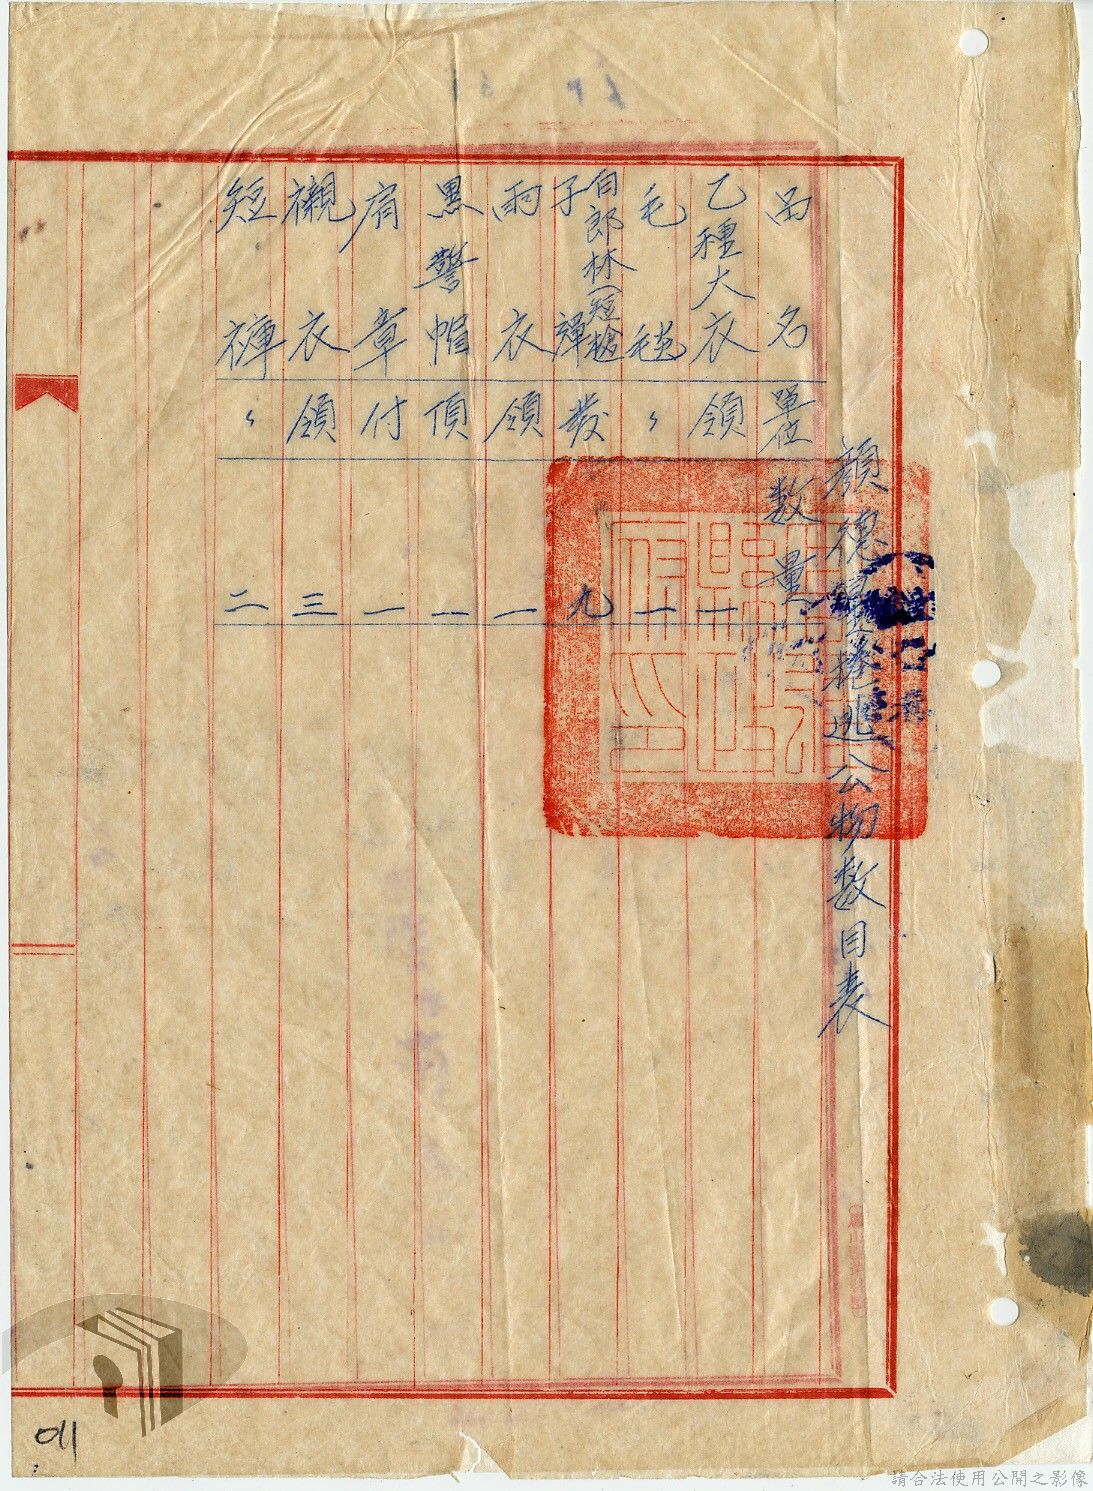 顏德捲逃公物數目表
品名 單位 數量
乙種大衣 領 一
毛毯 〃 一
白郎林(短槍
子彈 發 九
雨衣 領 一
黑警帽 頂 一
肩章 付 一
襯衣 領 三
短褲 〃 二
縣政
府印
011
請合法使用公開之影像